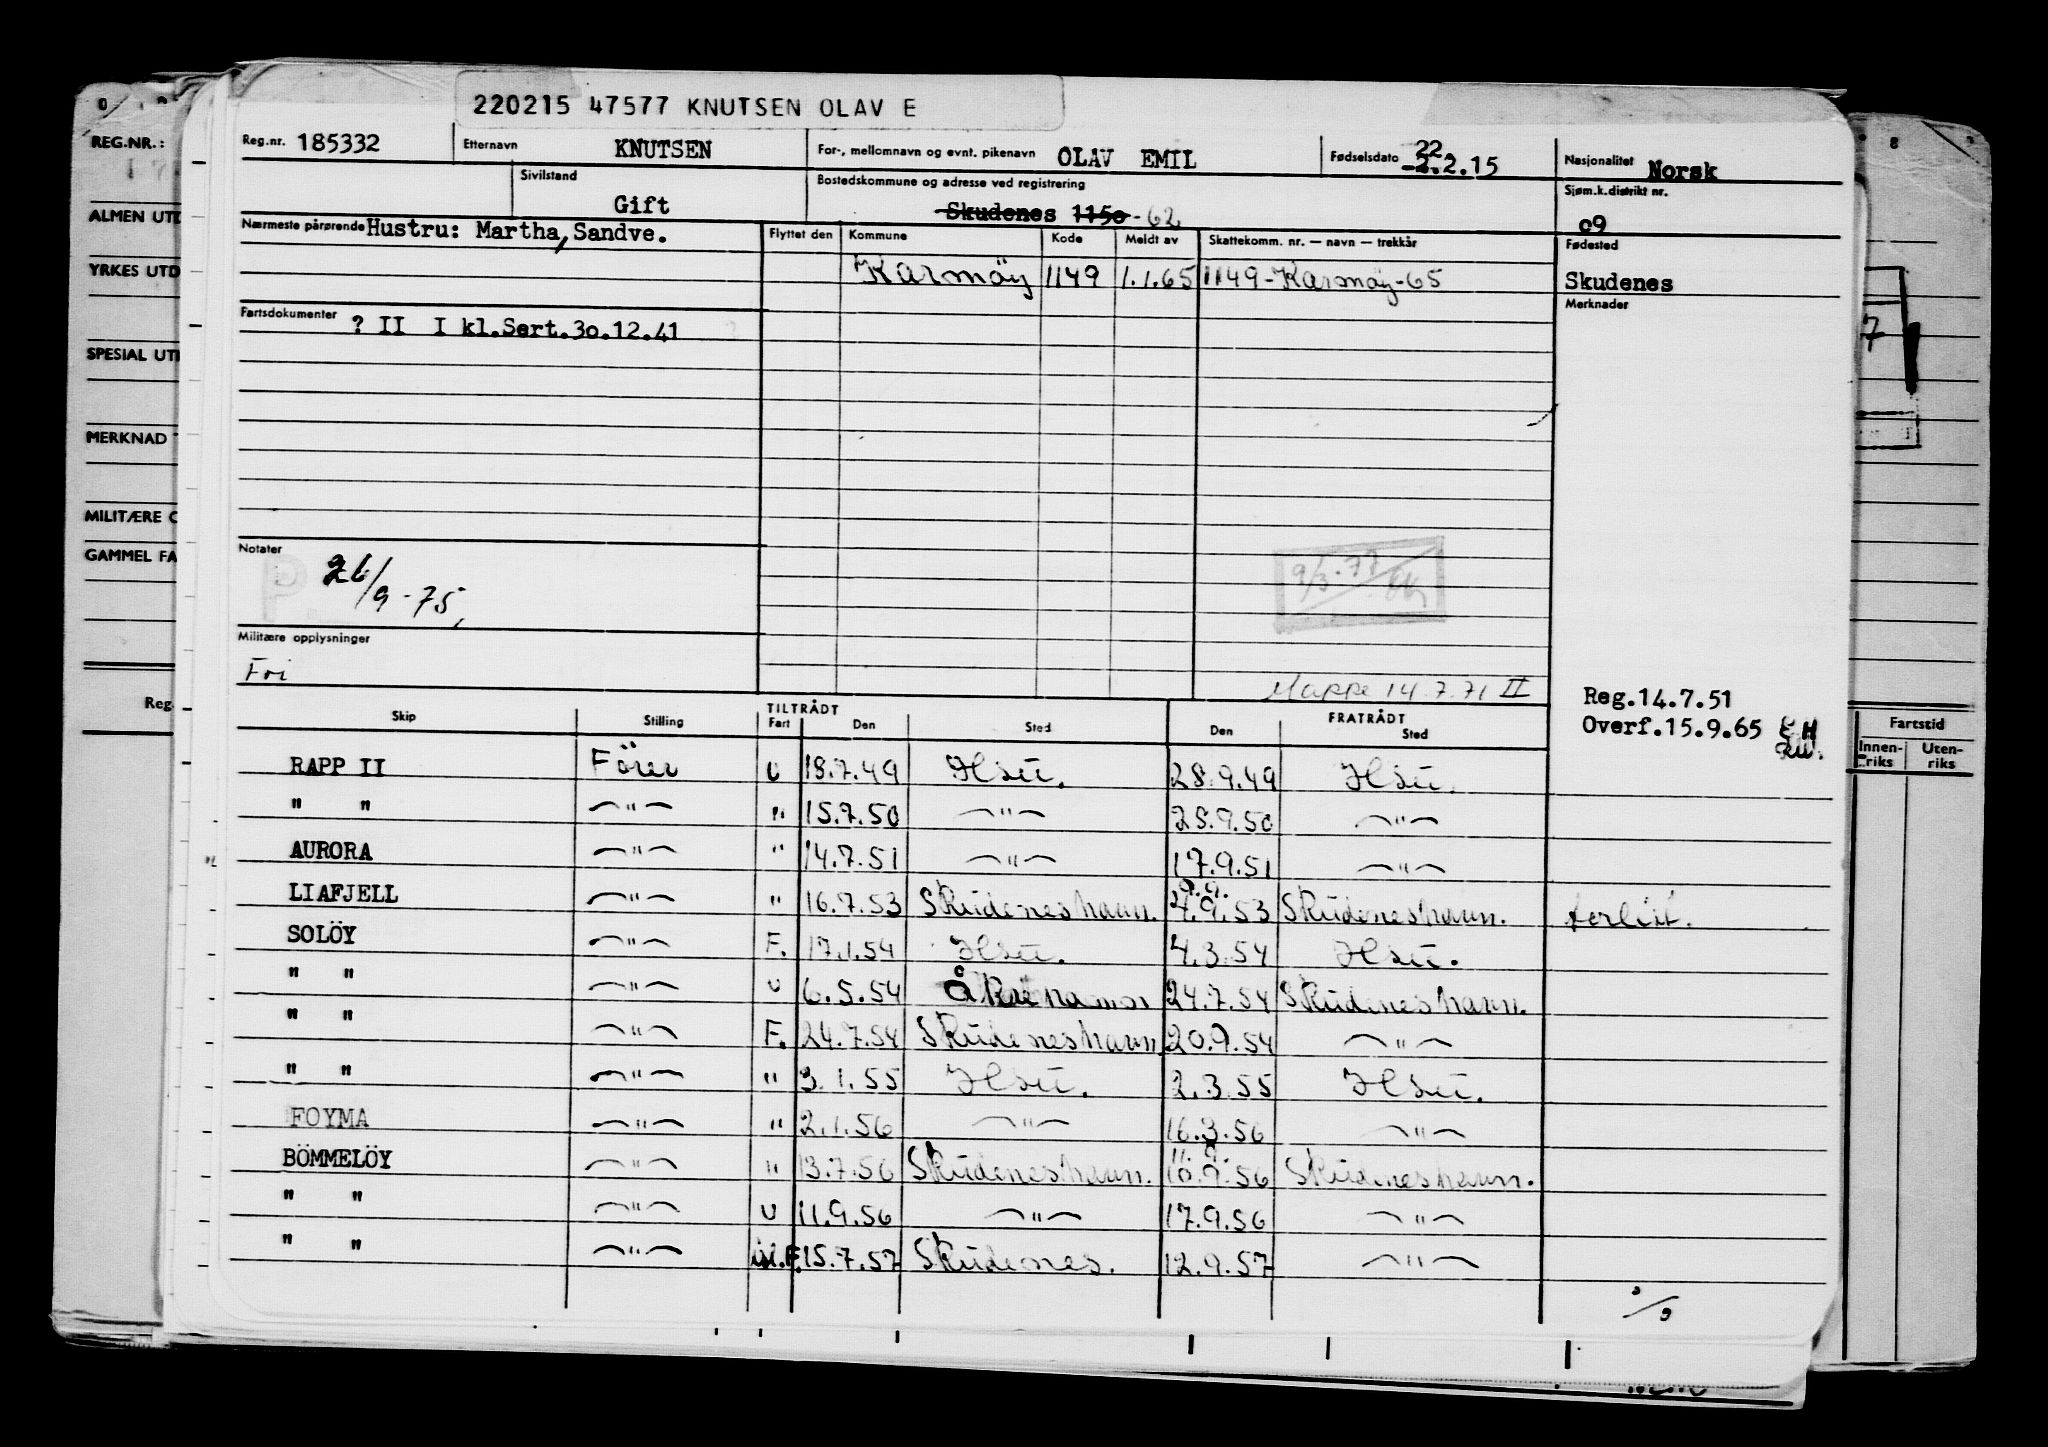 220215 47577 KNUTSEN OLAV E
Reg.nr. 185332 Etternavn KNUTSEN For-, mellomnavn og evnt. pikenavn OLAV EMIL Fødselsdato 22.2.15 Nasjonalitet Norsk
Sivilstand Gift Bostedskommune og adresse ved registrering Skudenes 1150 - 62 Sjøm.k.distrikt nr. o9
Nærmeste pårørende Hustru: Martha, Sandve. Flyttet den Kommune Kode Meldt av Skattekomm. nr. — navn — trekkår Fødested
Karmöy 1149 1.1.65 1149-Karmöy-65 Skudenes
Merknader
Fartsdokumenter ? II I kl.Sert.3o.12.41
Notater
26/9-75,
9/3-77
Militære opplysninger
Fri
Mappe 14.7.71 II
Reg.14.7.51
Overf.15.9.65
TILTRÅDT FRATRÅDT
Skip Stilling Fart Den Sted Den Sted
RAPP II Förer U 18.7.49 28.9.49
" " —"— " 15.7.50 —"— 28.9.50 —"—
AURORA —"— " 14.7.51 —"— 17.9.51 —"—
LIAFJELL —"— " 16.7.53 Skudeneshavn. 9.53 Skudeneshavn. forlist.
SOLÖY —"— F. 17.1.54 4.3.54
" " —"— U 6.5.54 24.7.54 Skudeneshavn.
" " —"— F. 24.7.54 Skudeneshavn 20.9.54 —"—
" " —"— " 3.1.55 2.3.55
FOYMA —"— " 2.1.56 —"— 16.3.56 —"—
BÖMMELÖY —"— " 13.7.56 Skudeneshavn. 9.56 Skudeneshavn.
" " —"— U 11.9.56 —"— 17.9.56 —"—
" " —"— 15.7.57 Skudenes. 12.9.57 —"—
REG.NR.:
ALMEN UTD
YRKES UTD
SPESIAL UTD
MERKNAD
MILITÆRE O
GAMMEL FA
Reg.
7
Fartstid
Innen-riks Uten-riks